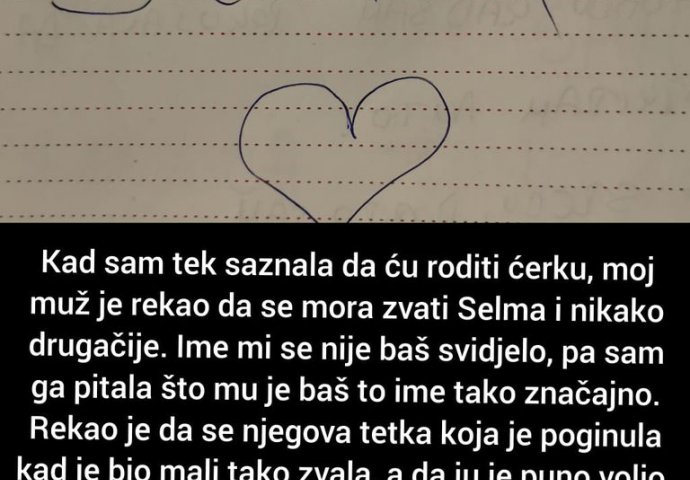 Kad sam tek saznala da ću roditi ćerku, moj
muž je rekao da se mora zvati Selma i nikako
drugačije. Ime mi se nije baš svidjelo, pa sam
ga pitala što mu je baš to ime tako značajno.
Rekao je da se njegova tetka koja je poginula
kad je bio mali tako zvala, a da ju je puno volio.